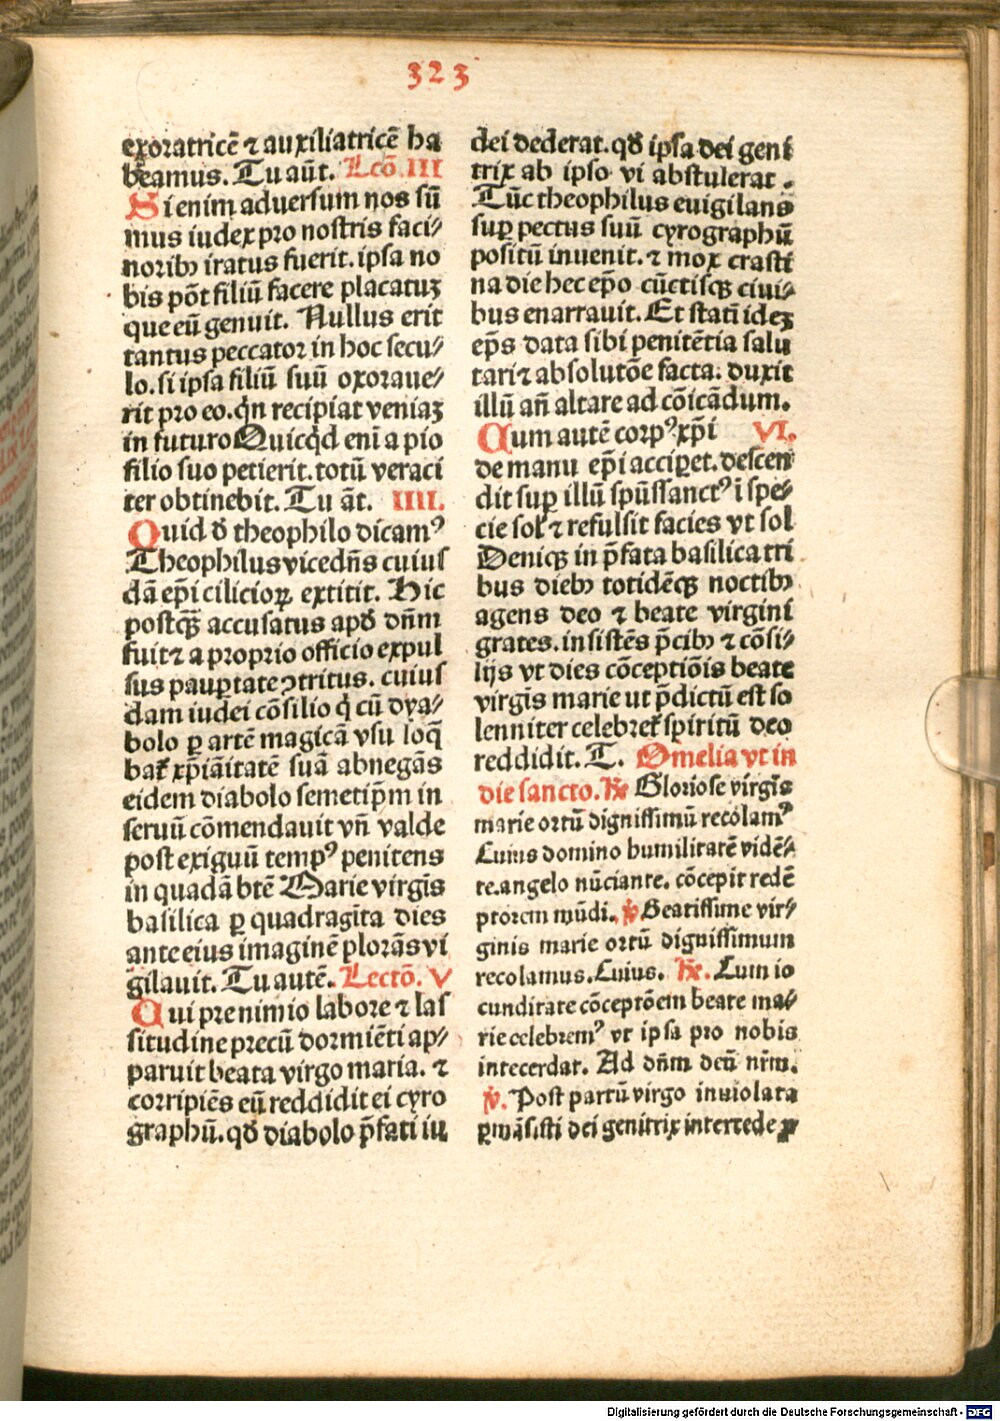 323
exoratricē ⁊ auxiliatricē ha
beamus. Tu aūt. Lcō. III
Si enim aduersum nos sū
mus iudex pro nostris faci⸗
noribꝰ iratus fuerit. ipsa no
bis pōt filiū facere placatuꝫ
que eū genuit. Nullus erit
tantus peccator in hoc secu⸗
lo. si ipsa filiū suū oxoraue⸗
rit pro eo. qn̄ recipiat veniaꝫ
in futuro Quicq̇d enī a pio
filio suo petierit. totū veraci
ter obtinebit. Tu āt. IIII.
Quid đ theophilo dicamꝰ
Theophilus vicedn̄s cuius
dā ep̄i cilicioꝝ extitit. Hic
postqꝫ̄ accusatus apđ dn̄m
fuit ⁊ a proprio officio expul
sus paup̲tate ꝯtritus. cuius
dam iudei cōsilio q̇ cū dya⸗
bolo ꝑ artē magicā vsu loq̄
bat᷑ xp̄iāitatē suā abnegās
eidem diabolo semetip̄m in
seruū cōmendauit vn̄ valde
post exiguū tempꝰ penitens
in quadā btē Marie virgīs
basilica ꝑ quadragīta dies
ante eius imaginē plorās vi
gilauit. Tu autē. Lectō. V
Qui pre nimio labore ⁊ las
situdine precū dormiēti ap⸗
paruit beata virgo maria. ⁊
corripiēs eū reddidit ei cyro
graphū. qđ diabolo p̄fati iu
dei dederat. qđ ipsa dei geni
trix ab ipso vi abstulerat.
Tūc theophilus euigilans
suꝑ pectus suū cyrographū
positū inuenit. ⁊ mox crasti
na die hec ep̄o cūctisqꝫ ciui⸗
bus enarrauit. Et statī ideꝫ
ep̄s data sibi penitētia salu
tari ⁊ absolutōe facta. duxit
illū añ altare ad cōicādum.
Cum autē corpꝰ xp̄i VI.
de manu ep̄i acciꝑet. descen
dit suꝑ illū spūssanctꝰ ī spe⸗
cie sol᷑ ⁊ refulsit facies vt sol
Deniqꝫ in p̄fata basilica tri
bus diebꝰ totidēqꝫ noctibꝰ
agens deo ⁊ beate virgini
grates. insistēs p̄cibꝰ ⁊ cōsi⸗
lijs vt dies cōceptiōis beate
virgīs marie ut p̄dictū est so
lenniter celebret᷑ spiritū deo
reddidit. T. Omelia vt in
die sancto. ℟ Gloriose virgīs
marie ortū dignissimū recolamꝰ
Cuius domino humilitatē vidē⸗
te. angelo nūciante. cōcepit redē
ptorem mūdi. ℣ Beatissime vir⸗
ginis marie ortū dignissimum
recolamus. Cuius. ℟. Cum io
cunditate cōceptōem beate ma⸗
rie celebremꝰ vt ipsa pro nobis
intecerdat. Ad dn̄m deū nr̄m.
℣. Post partū virgo inuiolata
ꝑmāsisti dei genitrix intercede ꝓ
Digitalisierung gefördert durch die Deutsche Forschungsgemeinschaft - DFG